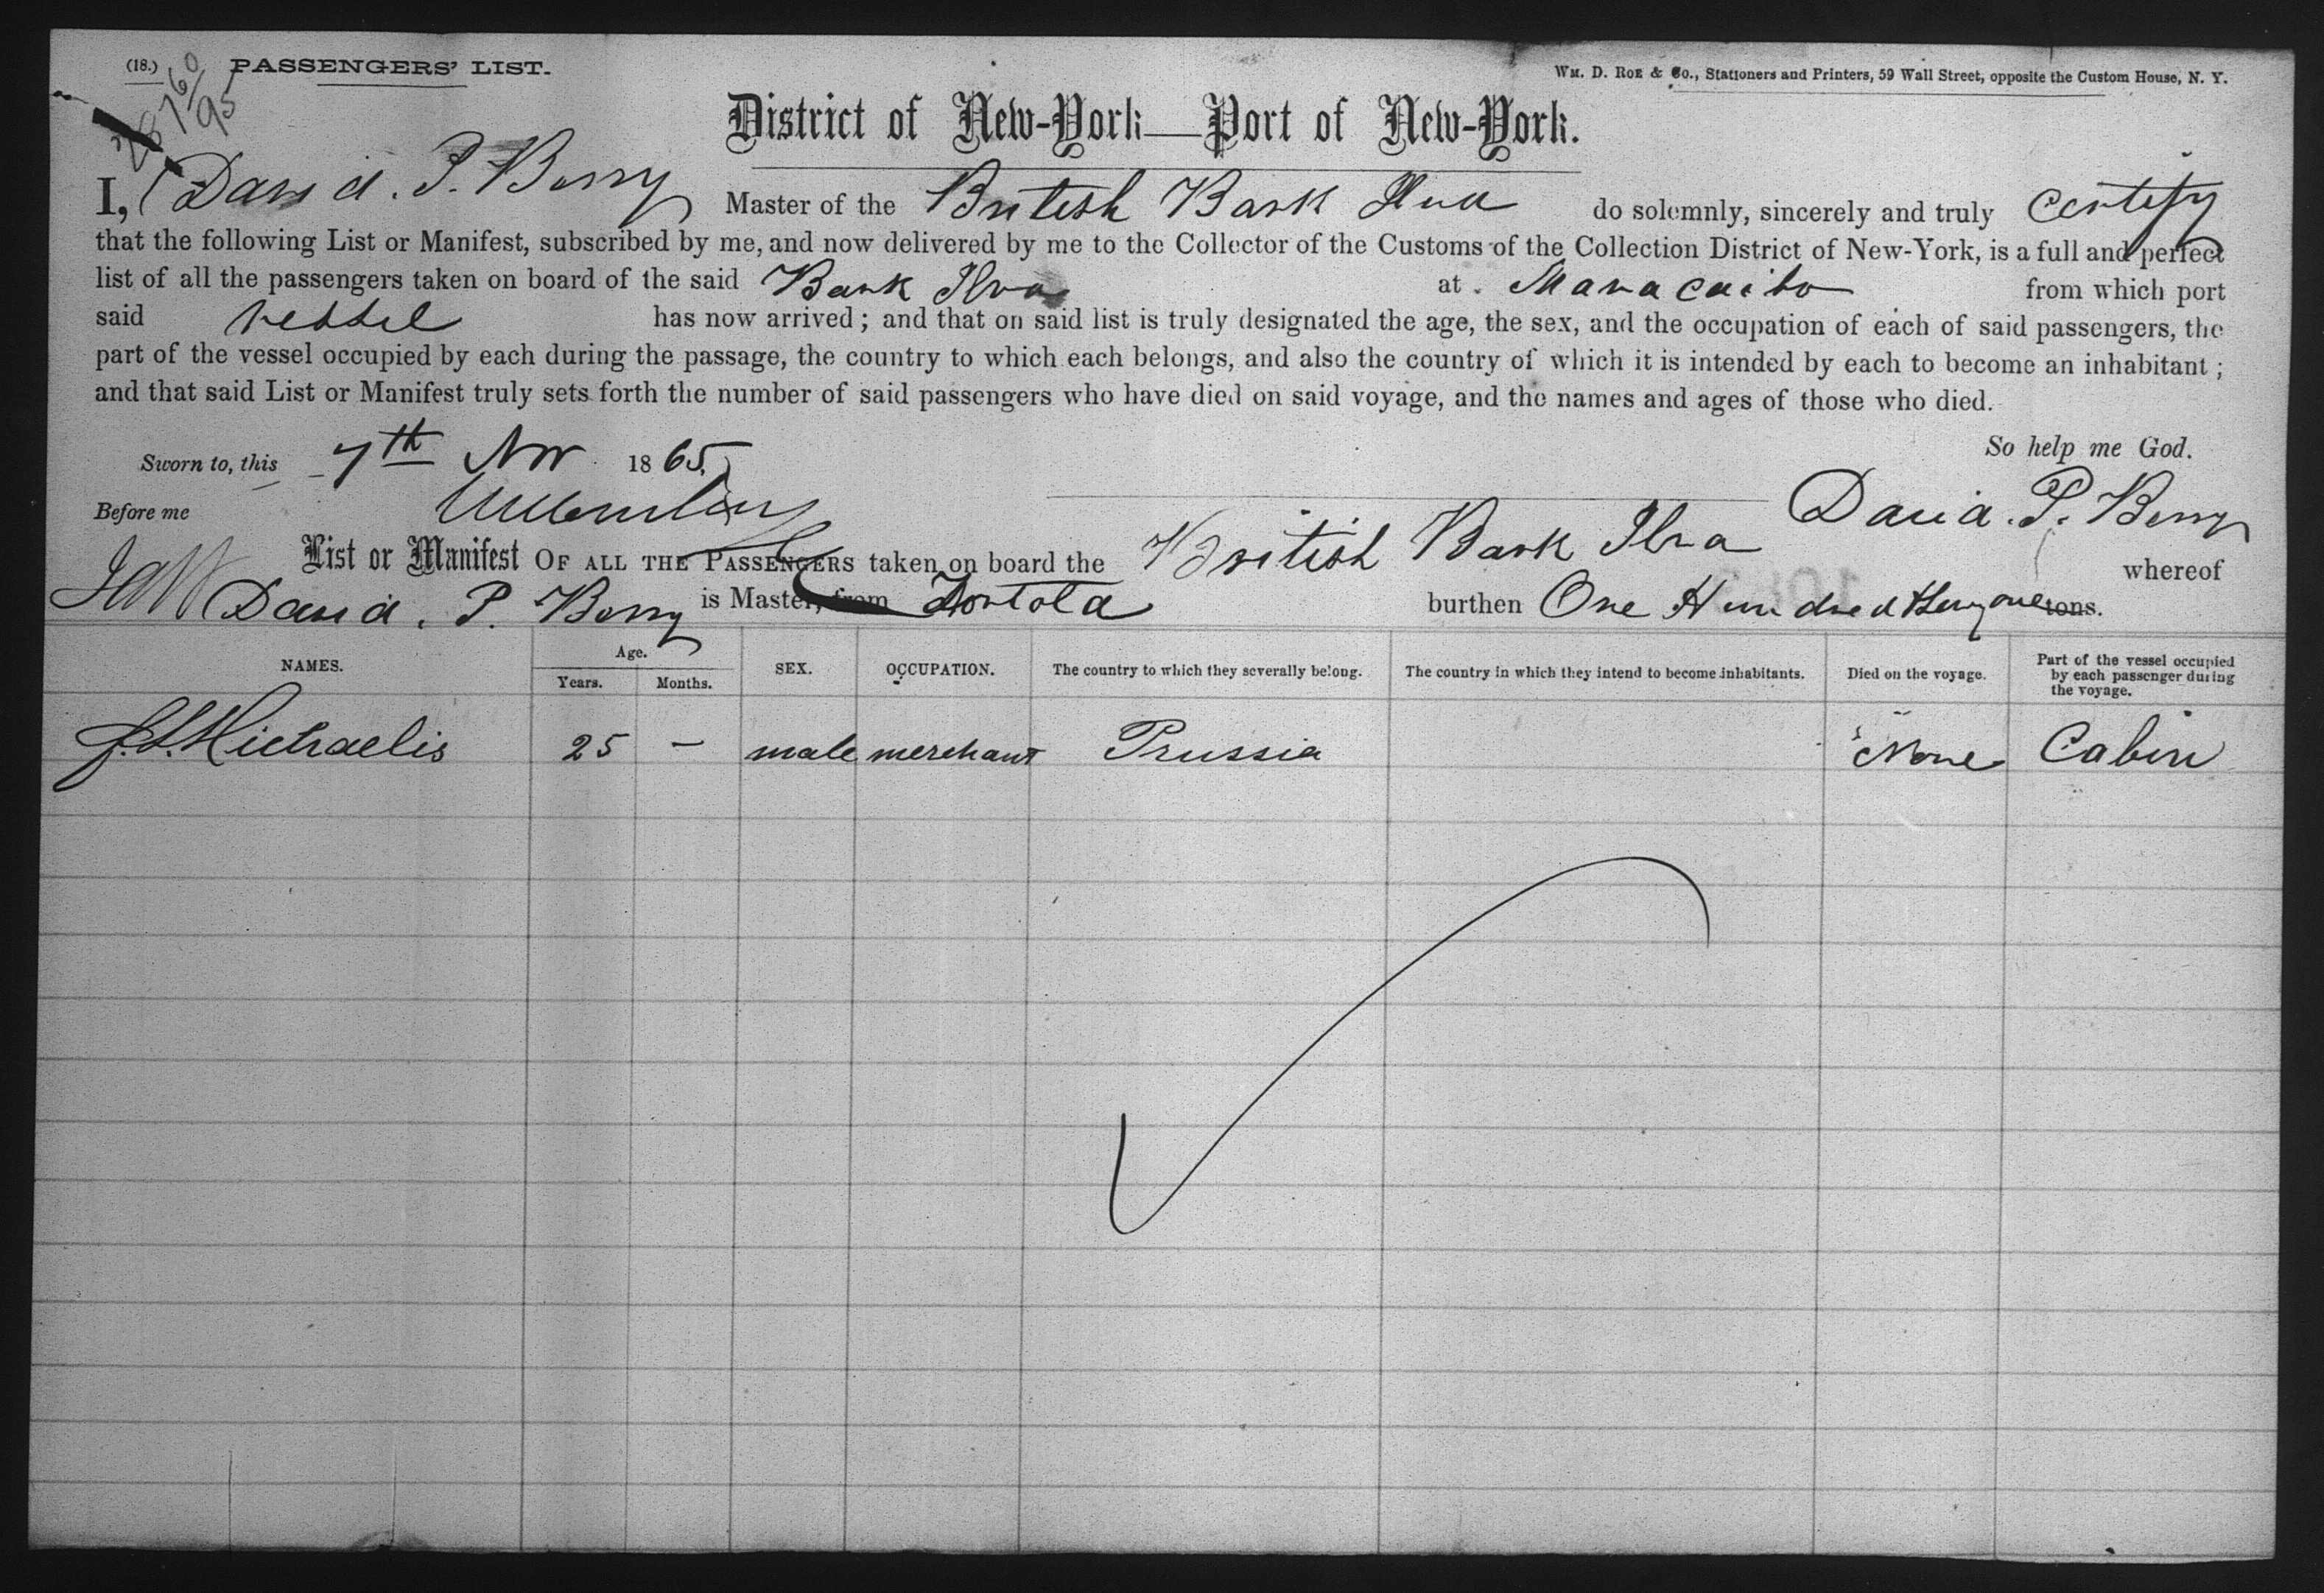 (18.) PASSENGERS' LIST.
WM. D. ROE & Co., Stationers and Printers, 59 Wall Street, opposite the Custom House, N. Y.
28760
95
District of New-York—Port of New-York.
I, David. P. Berry Master of the British Bark Ilva do solemnly, sincerely and truly certify
that the following List or Manifest, subscribed by me, and now delivered by me to the Collector of the Customs of the Collection District of New-York, is a full and perfect
list of all the passengers taken on board of the said Bark Ilva at Maracaibo from which port
said vessel has now arrived; and that on said list is truly designated the age, the sex, and the occupation of each of said passengers, the
part of the vessel occupied by each during the passage, the country to which each belongs, and also the country of which it is intended by each to become an inhabitant;
and that said List or Manifest truly sets forth the number of said passengers who have died on said voyage, and the names and ages of those who died.
So help me God.
Sworn to, this 7th Nov 1865.
Before me
David. P. Berry
List or Manifest OF ALL THE PASSENGERS taken on board the British Bark Ilva whereof
David. P. Berry is Master, from Tortola burthen One Hundred tons.
NAMES. Age. Years. Months. SEX. OCCUPATION. The country to which they severally belong. The country in which they intend to become inhabitants. Died on the voyage. Part of the vessel occupied by each passenger during the voyage.
J. L. Michaelis 25 – male merchant Prussia None Cabin